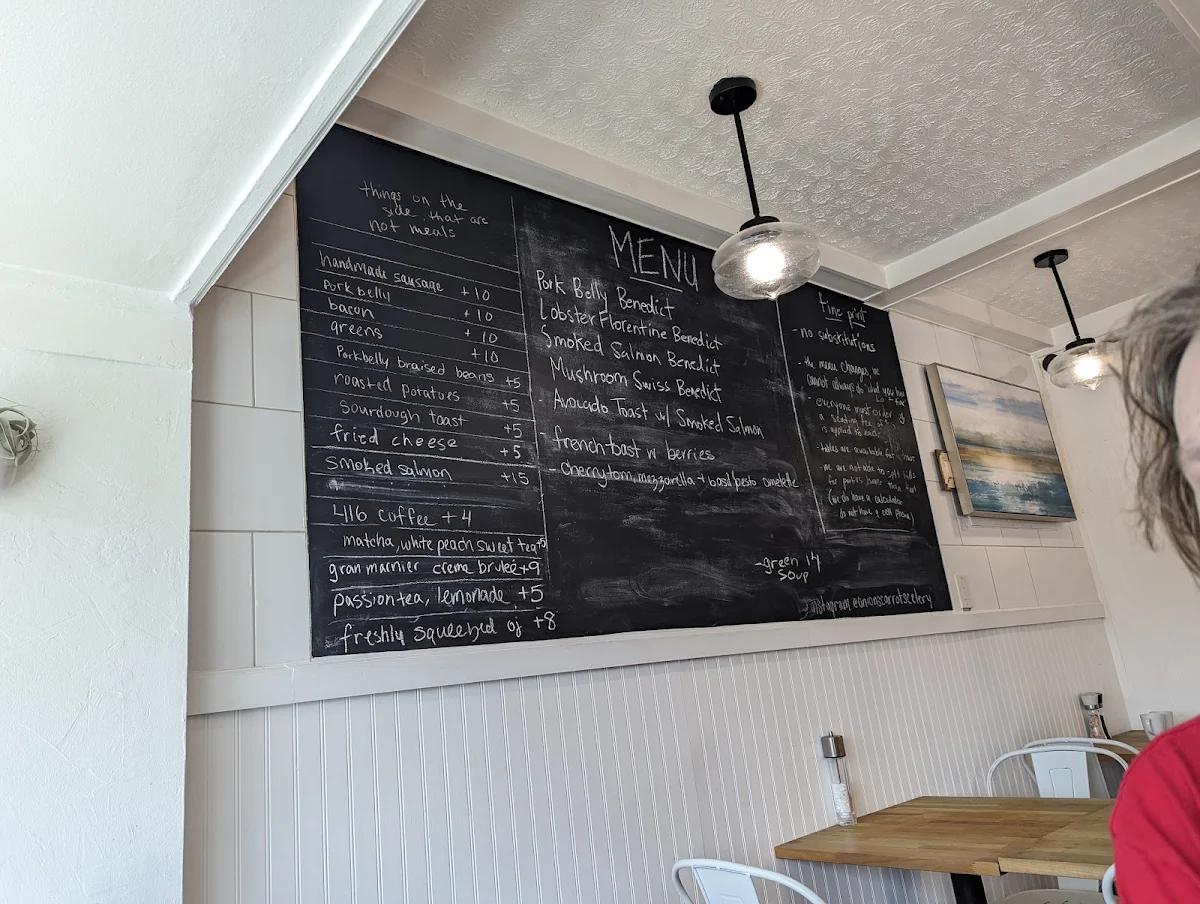 things on the
side that are
not meals
handmade sausage +10
Pork belly +10
bacon +10
greens +10
Porkbelly braised beans +5
roasted potatoes +5
sourdough toast +5
fried cheese +5
smoked salmon +15
416 coffee +4
matcha, white peach sweet tea +5
gran marnier creme brulee +9
passion tea, lemonade +5
freshly squeezed oj +8
MENU
Pork Belly Benedict
Lobster Florentine Benedict
Smoked Salmon Benedict
Mushroom Swiss Benedict
- Avocado Toast w/ Smoked Salmon
- french toast w berries
- cherry tom, mozzarella + basil pesto omelette
- green 14
soup
fine print
- no substitutions
- the menu changes, we
cannot always do what you
- everyone must order or
a seating fee of
is applied to each
- tables are available for 1 hour
- we are not able to split bills
for parties than
(we do have a calculator
do not have a cell phone)
instagram @onionscarrotscelery